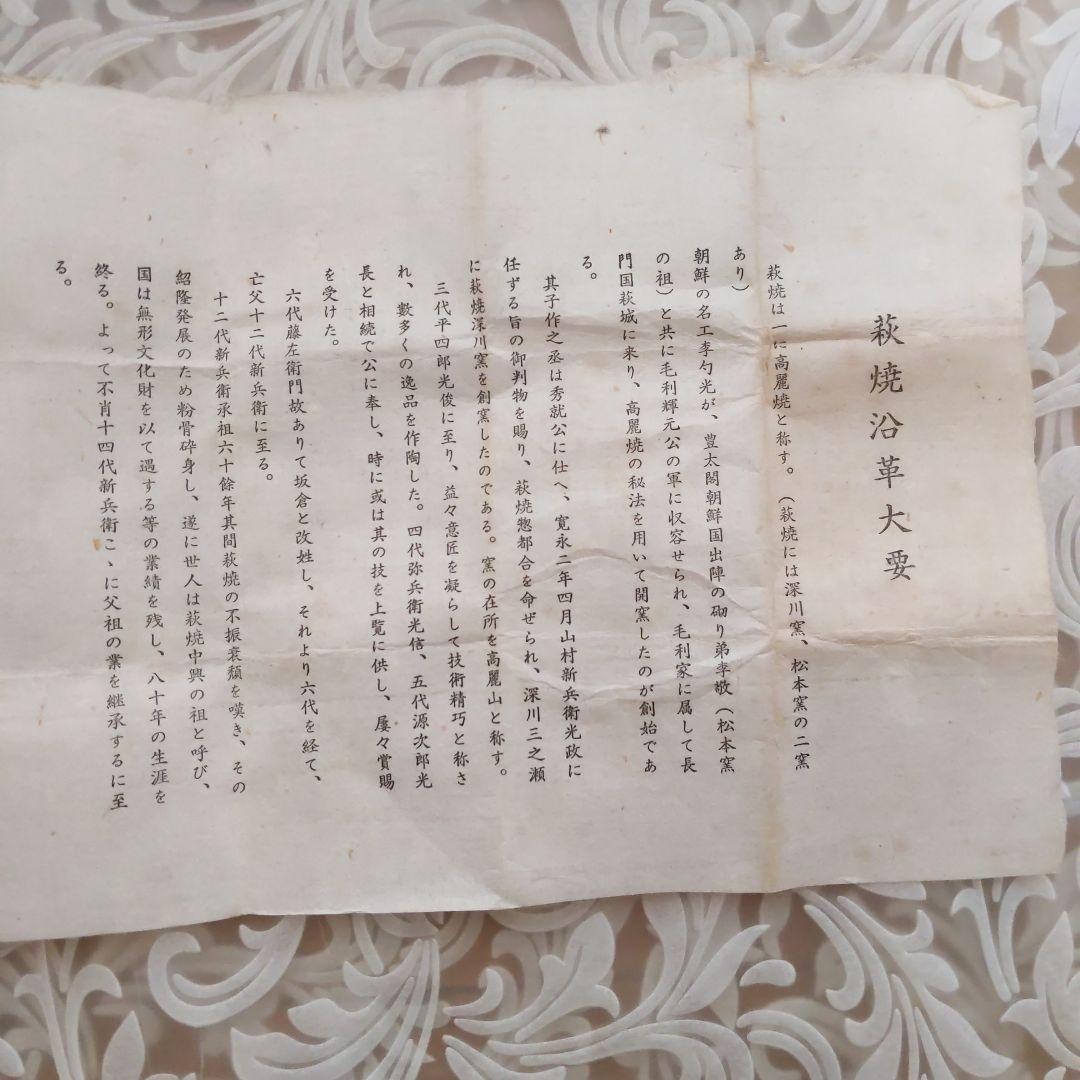 萩焼沿革大要
萩焼は一に高麗焼と称す。（萩焼には深川窯、松本窯の二窯
あり）
朝鮮の名工李勺光が、豊太閤朝鮮国出陣の砌り弟李敬（松本窯
の祖）と共に毛利輝元公の軍に収容せられ、毛利家に属して長
門国萩城に来り、高麗焼の秘法を用いて開窯したのが創始であ
る。
其子作之丞は秀就公に仕へ、寛永二年四月山村新兵衛光政に
任ずる旨の御判物を賜り、萩焼惣都合を命ぜられ、深川三之瀬
に萩焼深川窯を創窯したのである。窯の在所を高麗山と称す。
三代平四郎光俊に至り、益々意匠を凝らして技術精巧と称さ
れ、數多くの逸品を作陶した。四代弥兵衛光信、五代源次郎光
長と相続で公に奉し、時に或は其の技を上覧に供し、屡々賞賜
を受けた。
六代藤左衛門故ありて坂倉と改姓し、それより六代を経て、
亡父十二代新兵衛に至る。
十二代新兵衛承祖六十餘年其間萩焼の不振衰頽を嘆き、その
紹隆発展のため粉骨砕身し、遂に世人は萩焼中興の祖と呼び、
国は無形文化財を以て遇する等の業績を残し、八十年の生涯を
終る。よって不肖十四代新兵衛こゝに父祖の業を継承するに至
る。